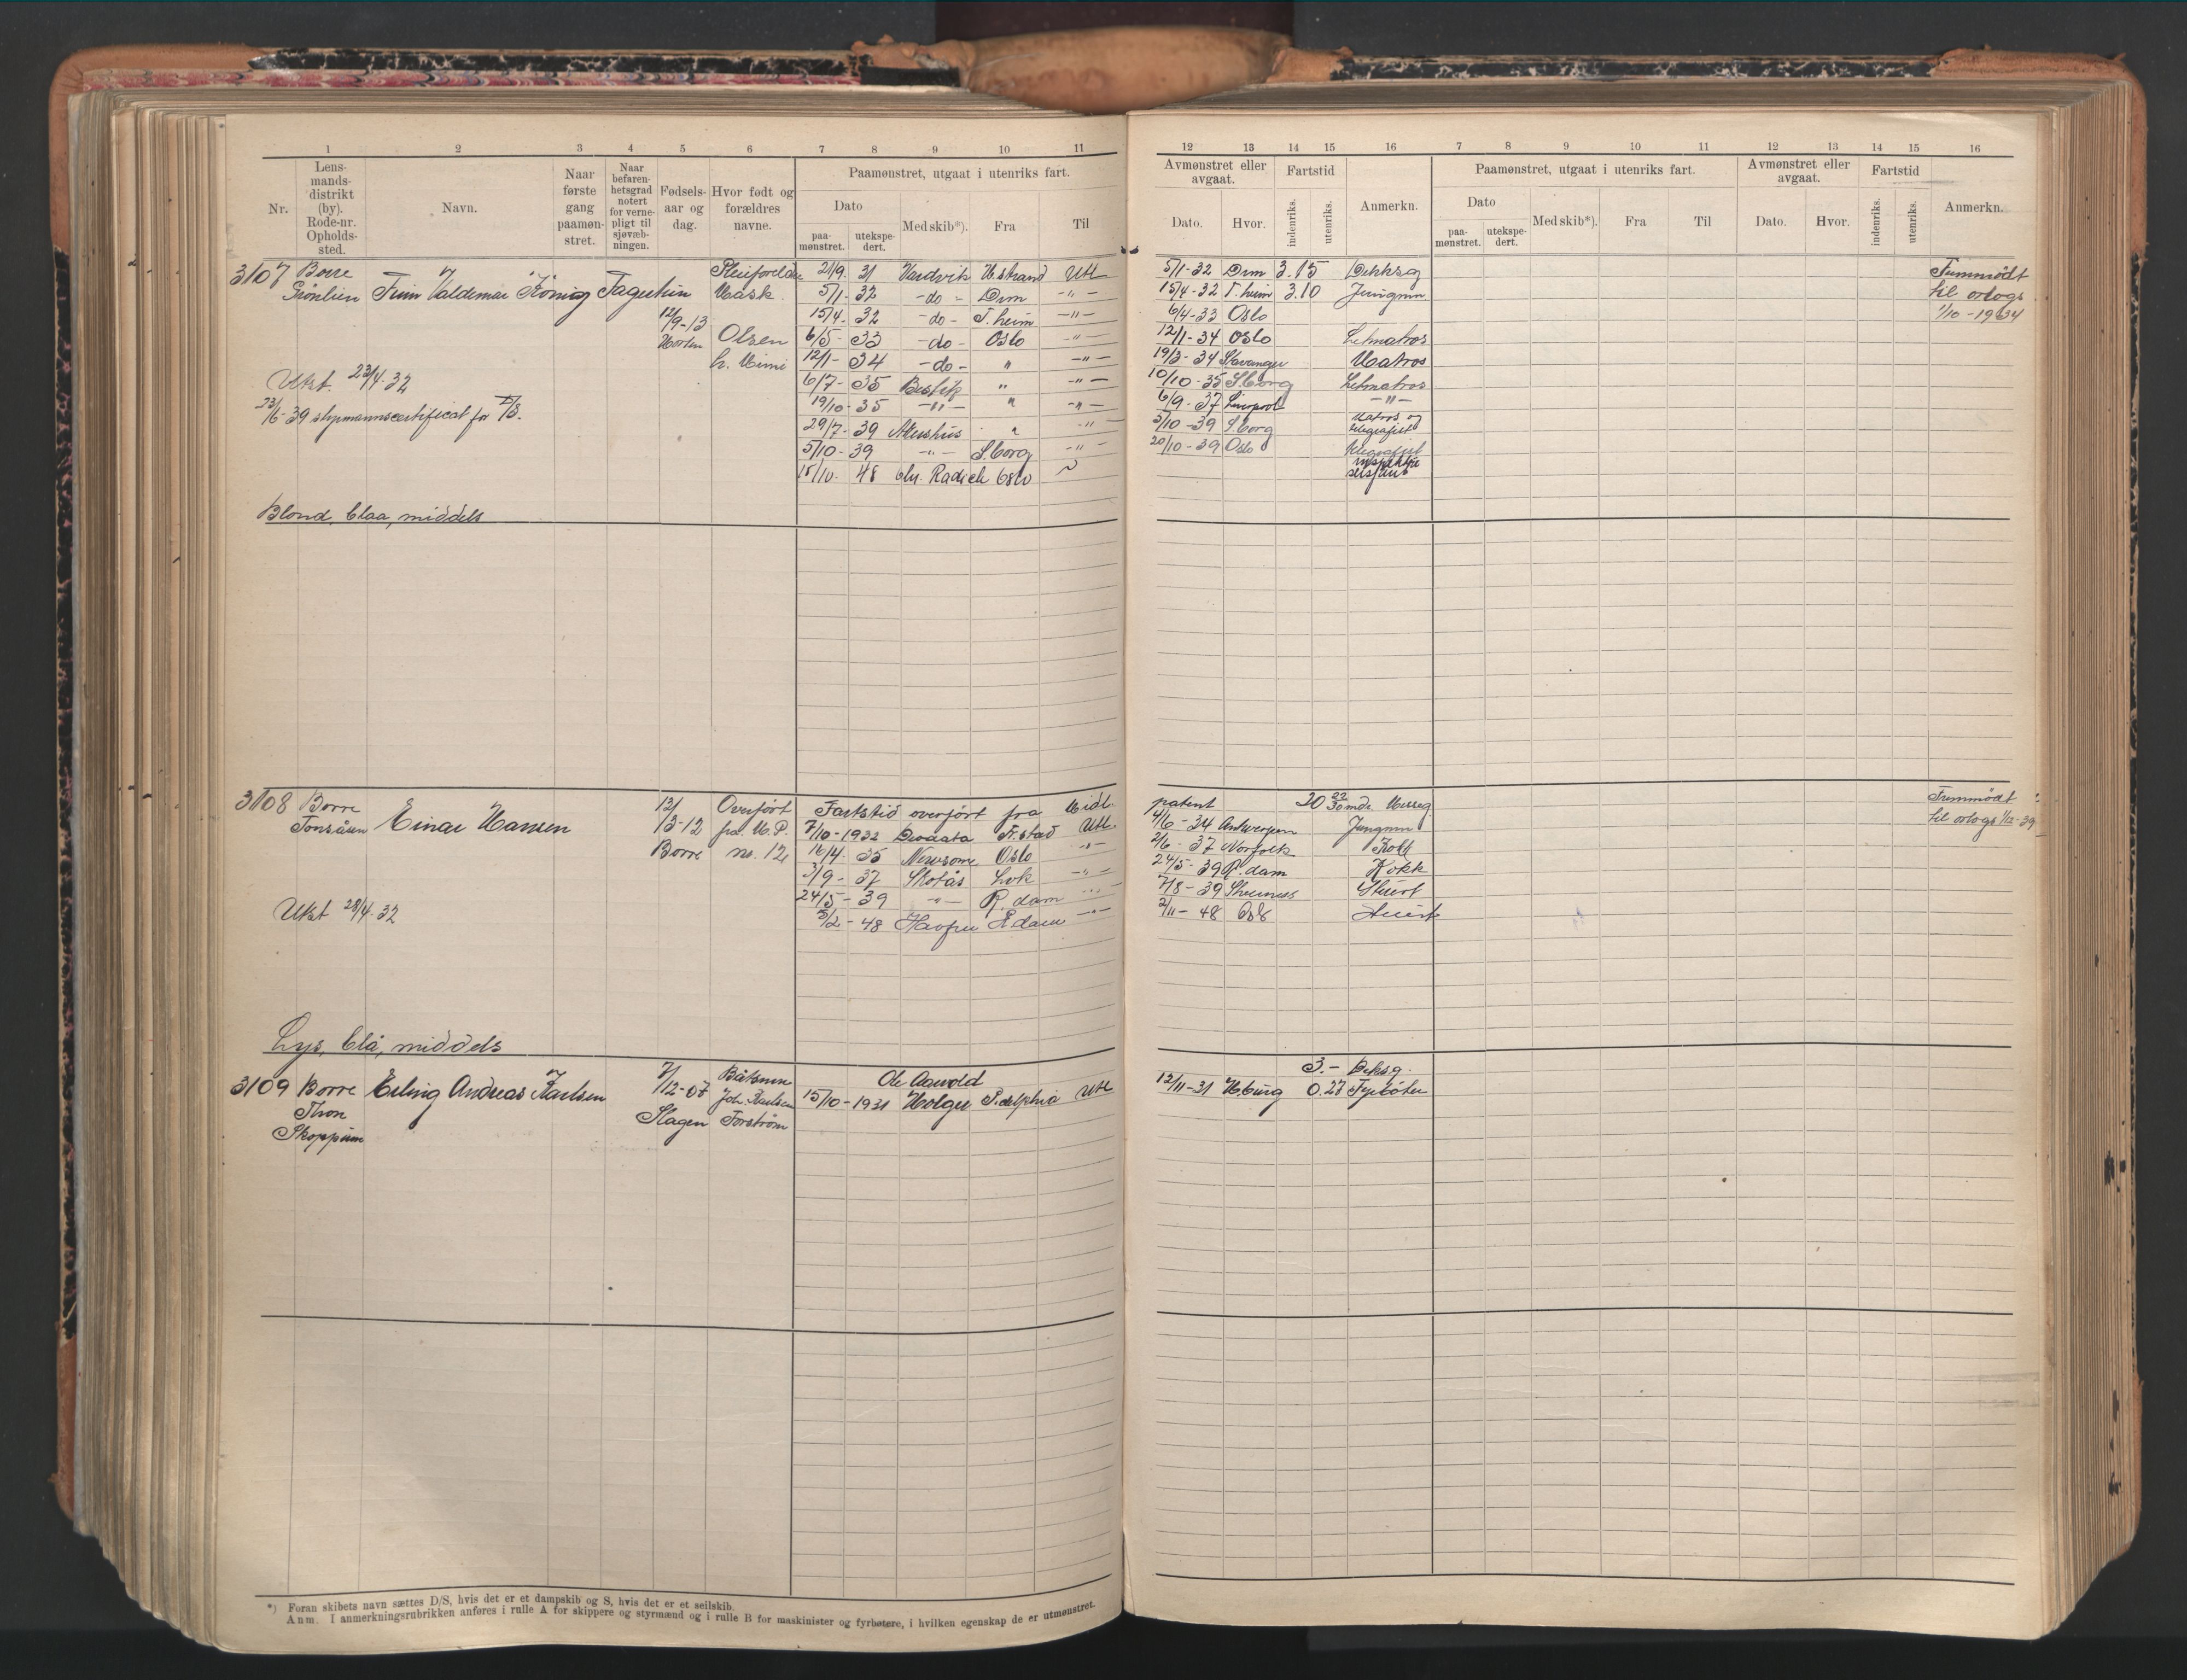 1 2 3 4 5 6 7 8 9 10 11
Nr.
Lens-
mands-
distrikt
(by).
Rode-nr.
Opholds-
sted.
Navn.
Naar
første
gang
paamøn-
stret.
Naar
befaren-
hetsgrad
notert
for verne-
pligt til
sjøvæb-
ningen.
Fødsels-
aar og
dag.
Hvor født og
forældres
navne.
Paamønstret, utgaat i utenriks fart.
Dato
paa-
mønstret.
utekspe-
dert.
Med skib*).
Fra
Til
12 13 14 15 16 7 8 9 10 11 12 13 14 15 16
Avmønstret eller
avgaat.
Dato.
Hvor.
Fartstid
indenriks.
utenriks.
Anmerkn.
Paamønstret, utgaat i utenriks fart.
Dato
paa-
mønstret.
utekspe-
dert.
Med skib*).
Fra
Til
Avmønstret eller
avgaat.
Dato.
Hvor.
Fartstid
indenriks.
utenriks.
Anmerkn.
3107 Borre
Grønlien Finn Valdemar
12/9-13
Horten
Olsen
h. Mimi
Utst. 23/4-32
23/6-39 styrmannscertifikat for D/S.
21/9. 31 Vardvik H.strand Utl
5/1- 32 -do- Drm -"-
15/4- 32 -do- T.heim -"-
6/5- 33 -do- Oslo -"-
12/1- 34 -do- " -"-
6/7- 35 Bestik " -"-
19/10- 35 -"- " -"-
29/7- 39 Akershus " -"-
5/10- 39 -"- S.borg -"-
15/10- 48 Chr. Radich Oslo
Blond, blaa, middels
5/1-32 Drm 3.15 Dekksg
15/4-32 T.heim 3.10 Jungmn
6/4-33 Oslo
12/1-34 Oslo Letmatros
19/3-34 Stavanger Matros
10/10-35 S.borg Letmatros
6/9-37 Liverpool -"-
5/10-39 S.borg Matros og
telegrafist
20/10-39 Oslo Telegrafist
Fremmödt
til orlogs
1/10-1934
3108 Borre
Tonsåsen Einar Hansen
12/3-12
Borre
Overført
fra M.P.
no. 12
Fartstid overført fra Midl.
7/10-1932 Deodata Fr.stad Utl
16/4- 35 Newsome Oslo -"-
3/9- 37 Skotås -"-
24/5- 39 -"- R.dam -"-
5/2-48 Havfru Adam -"-
Utst 28/4-32
Lys, blå, middels
patent 20 22/30 mdr Messeg
4/6-34 Antwerpen Jungmn
2/6-37 Norfolk Kokk
24/5-39 R.dam Kokk
7/8-39 Sheerness Stuert
2/11-48 Oslo Stuert
Fremmödt
til orlogs 1/12-39
3109 Borre Erling Andreas Karlsen
Thon
Skoppum
7/12-07
Slagen
Båtsmn
Joh. Karlsen
Forstrøm
Ole Aarvold
15/10-1931 Holger P.delphia Utl
3.- Deksg.
12/11-31 H.burg 0.27 Fyrbøter
*) Foran skibets navn sættes D/S, hvis det er et dampskib og S, hvis det er et seilskib.
Anm. I anmerkningsrubrikken anføres i rulle A for skippere og styrmænd og i rulle B for maskinister og fyrbøtere, i hvilken egenskap de er utmønstret.